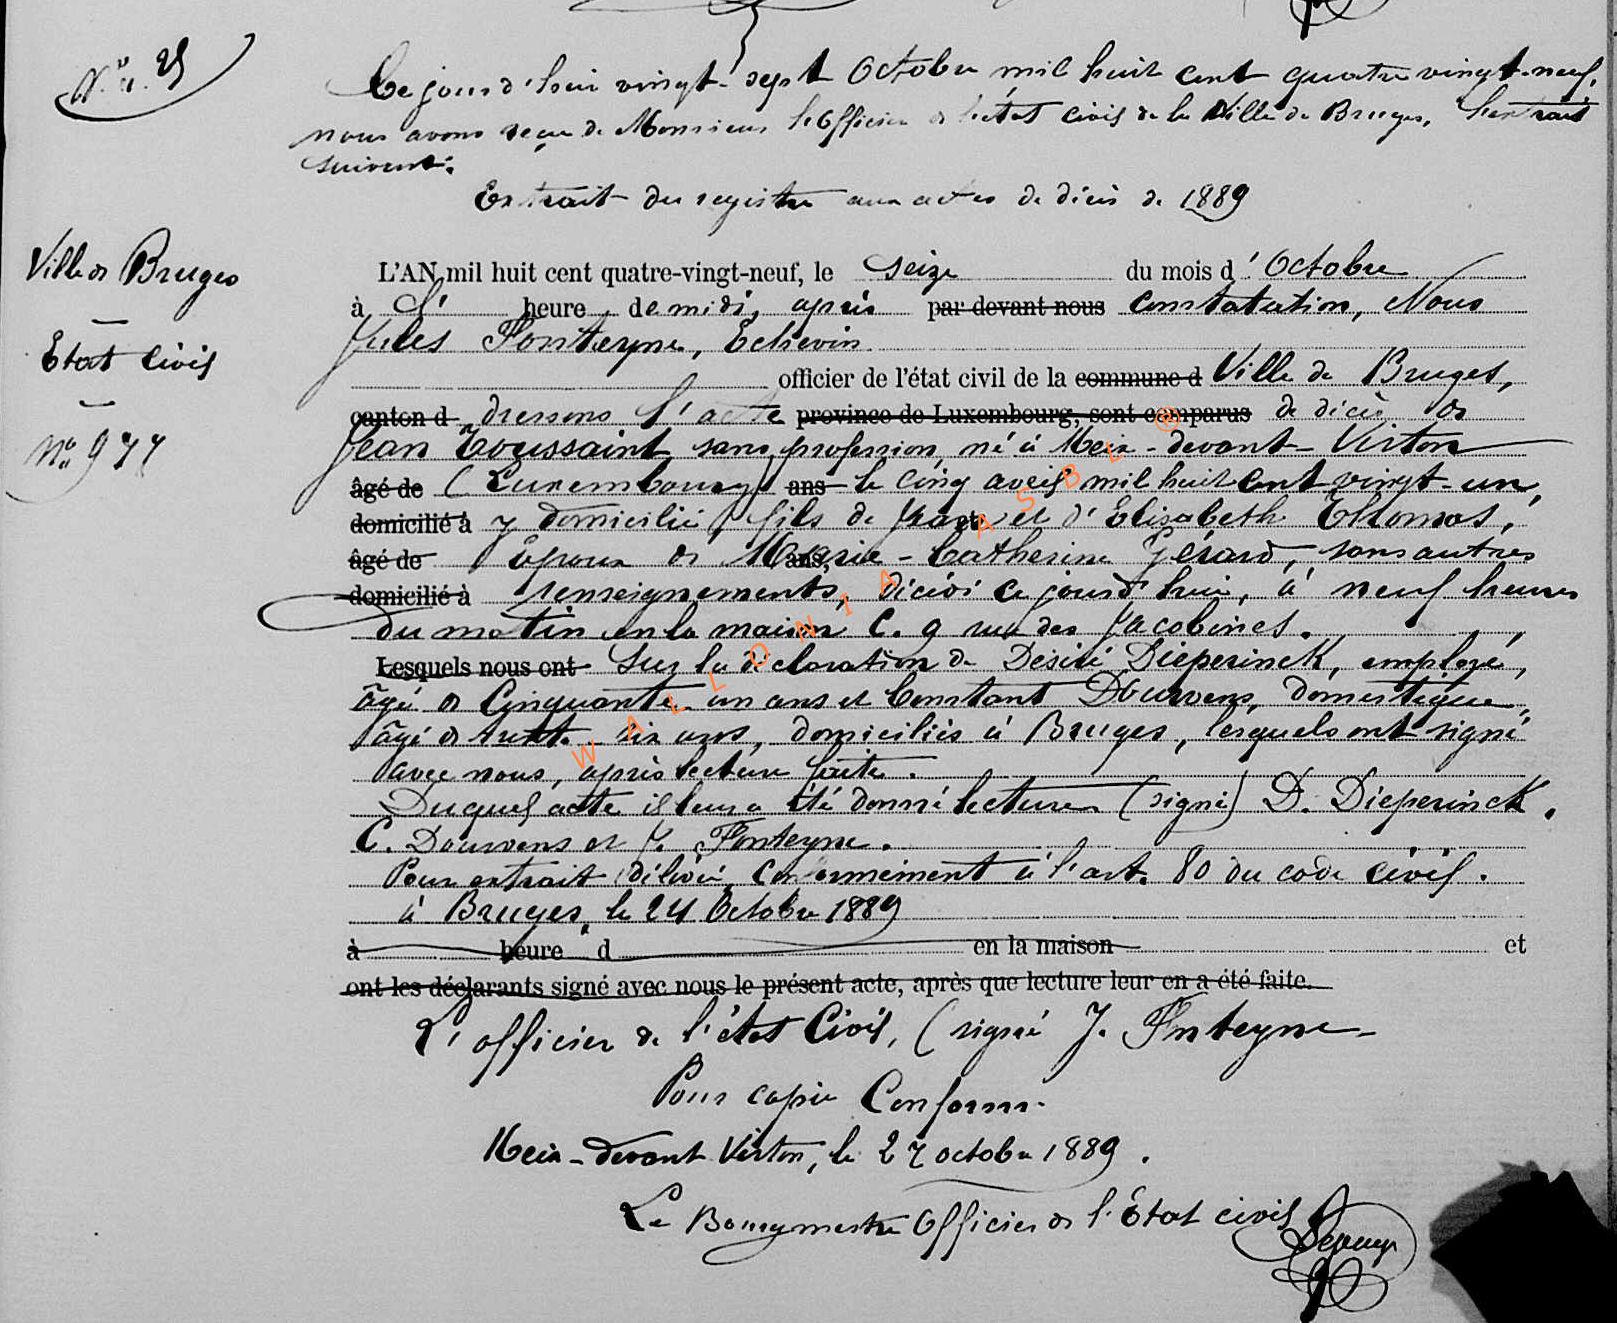 N° 25
Ce jourd'hui vingt-sept Octobre mil huit cent quatre vingt-neuf,
nous avons reçu de Monsieur l'Officier de l'état civil de la Ville de Bruges, l'extrait
suivant:
Extrait du registre aux actes de décès de 1889
Ville de Bruges
Etat civil
N° 977
L'AN mil huit cent quatre-vingt-neuf, le seize du mois d'Octobre
à heure de midi, après par devant nous constatation, Nous
Jules Fonteyne, Echevin
officier de l'état civil de la commune d Ville de Bruges,
canton d dressons l'acte province de Luxembourg, sont comparus de décès de
Jean Toussaint, sans profession, né à Meix-devant-Virton
âgé de (Luxembourg) ans le cinq avril mil huit cent vingt-un,
domicilié à y domicilié, fils de Jean et d'Elisabeth Thomas,
âgé de Epoux de ans, Marie-Catherine Gérard, sans autres
domicilié à renseignements, décédé ce jourd'hui, à neuf heures
du matin en la maison C. 9 rue des Jacobines.
Lesquels nous ont Sur la déclaration de Désiré Dieperinck, employé,
âgé de Cinquante un ans et Constant Dourvens, domestique,
âgé de trente six ans, domiciliés à Bruges, lesquels ont signé
avec nous, après lecture faite.
Duquel acte il leur a été donné lecture (signé) D. Dieperinck.
C. Dourvens et J. Fonteyne.
Pour extrait délivré conformément à l'art. 80 du code civil.
à Bruges, le 24 Octobre 1889
à heure d en la maison et
ont les déclarants signé avec nous le présent acte, après que lecture leur en a été faite.
L'officier de l'état Civil, (signé J. Fonteyne
Pour copie Conforme
Meix-devant Virton, le 27 octobre 1889.
Le Bourgmestre Officier de l'Etat civil
WALLONIA ASBL ®